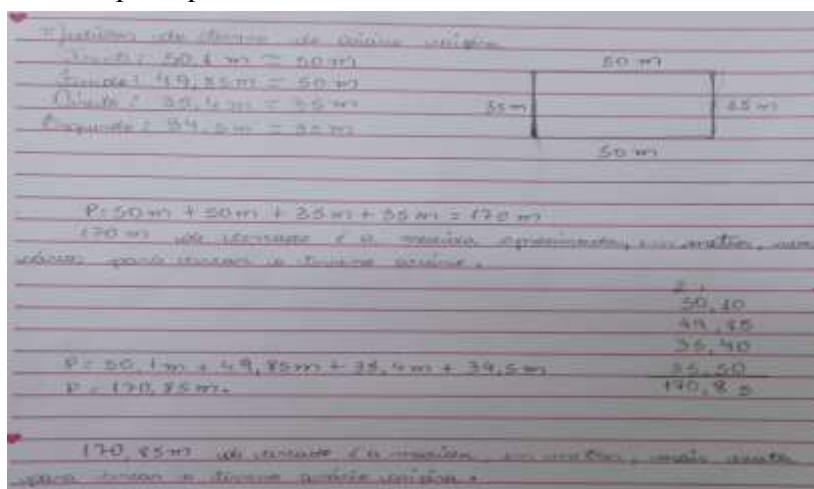 Medidas do terreno de
Frente: 50,1 m = 50 m
Fundo: 49,85 m = 50 m
Direito: 35,4 m = 35 m
Esquerdo: 34,5 m = 35 m
50 m
35 m
35 m
50 m
P = 50 m + 50 m + 35 m + 35 m = 170 m
170 m de é a medida aproximada, em metros,
para cercar o terreno
2 1
50,10
49,85
35,40
35,50
170,85
P = 50,1 m + 49,85 m + 35,4 m + 34,5 m
P = 170,85 m.
170,85 m de é a medida, em metros, mais exata
para cercar o terreno